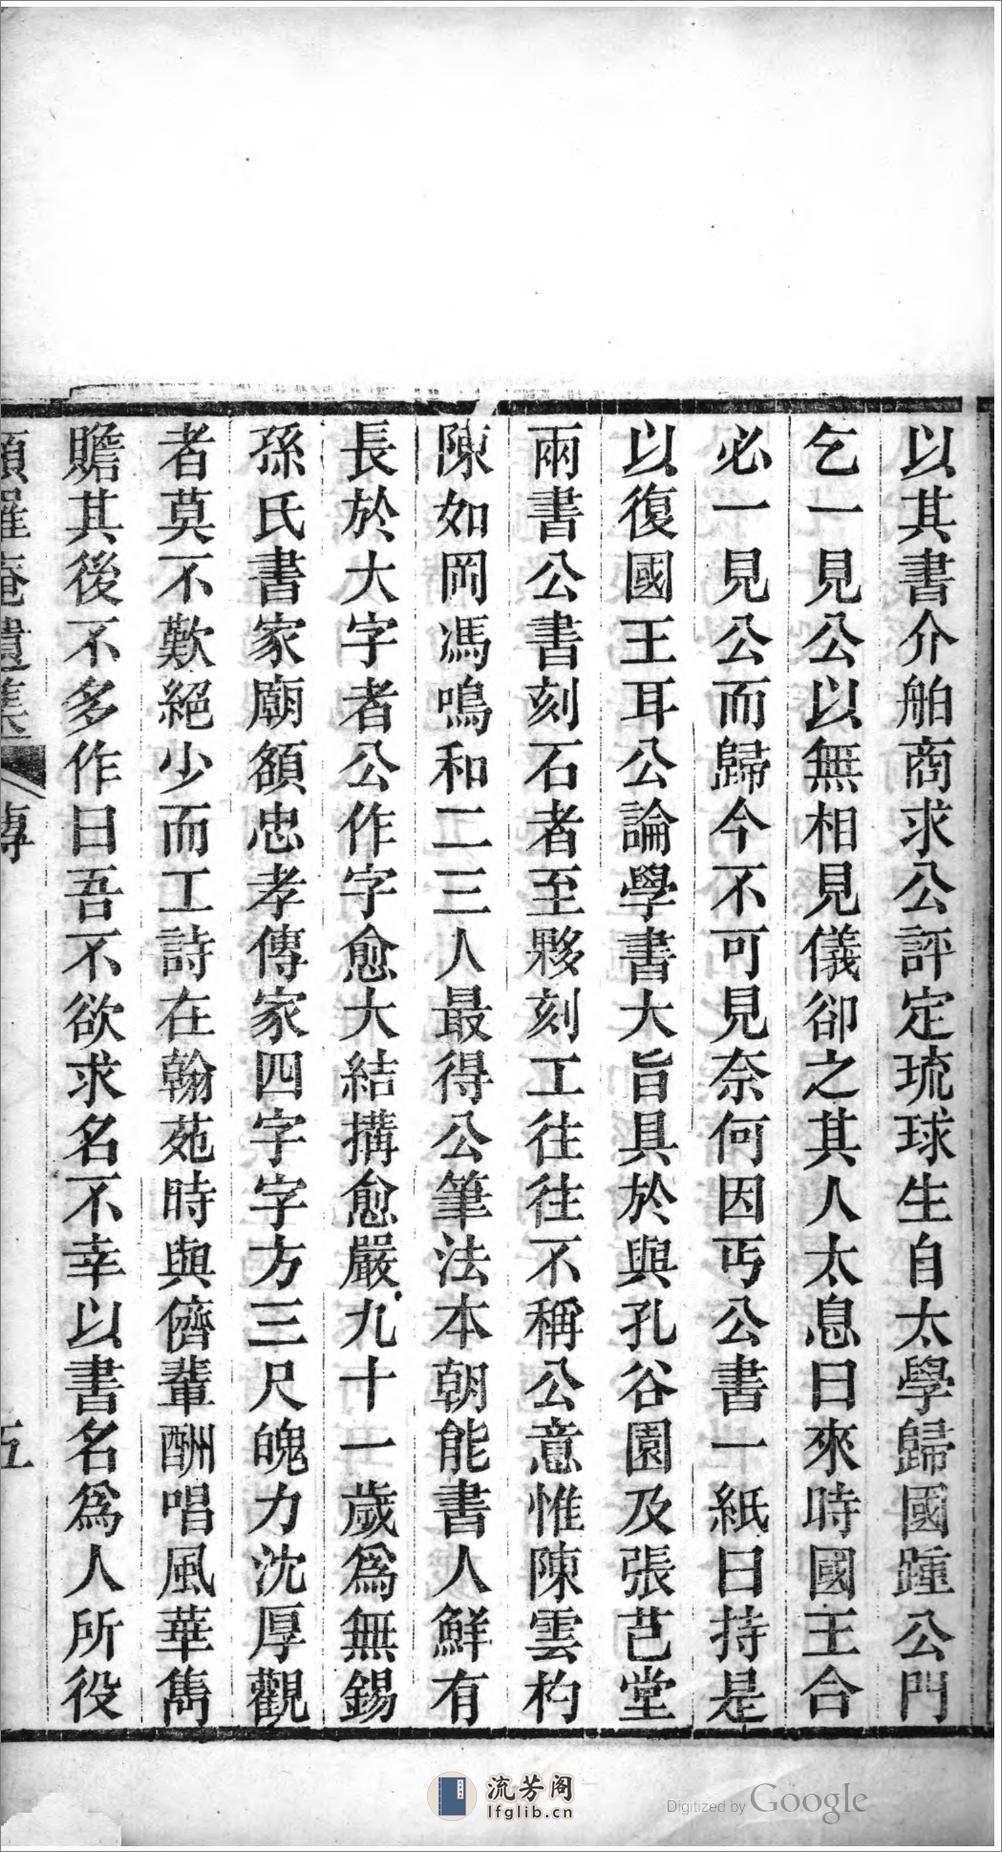 以其書介舶商求公評定琉球生自太學歸國踵公門
乞一見公以無相見儀卻之其人太息曰來時國王合
必一見公而歸今不可見奈何因丐公書一紙曰持是
以復國王耳公論學書大旨具於與孔谷園及張芑堂
兩書公書刻石者至夥刻工往往不稱公意惟陳雲杓
陳如岡馮鳴和二三人最得公筆法本朝能書人鮮有
長於大字者公作字愈大結搆愈嚴九十一歲爲無錫
孫氏書家廟額忠孝傳家四字字方三尺魄力沈厚觀
者莫不歎絕少而工詩在翰苑時與儕輩酬唱風華雋
贍其後不多作曰吾不欲求名不幸以書名爲人所役
頻羅庵遺集 傳 五
流芳阁
lfglib.cn
Digitized by Google